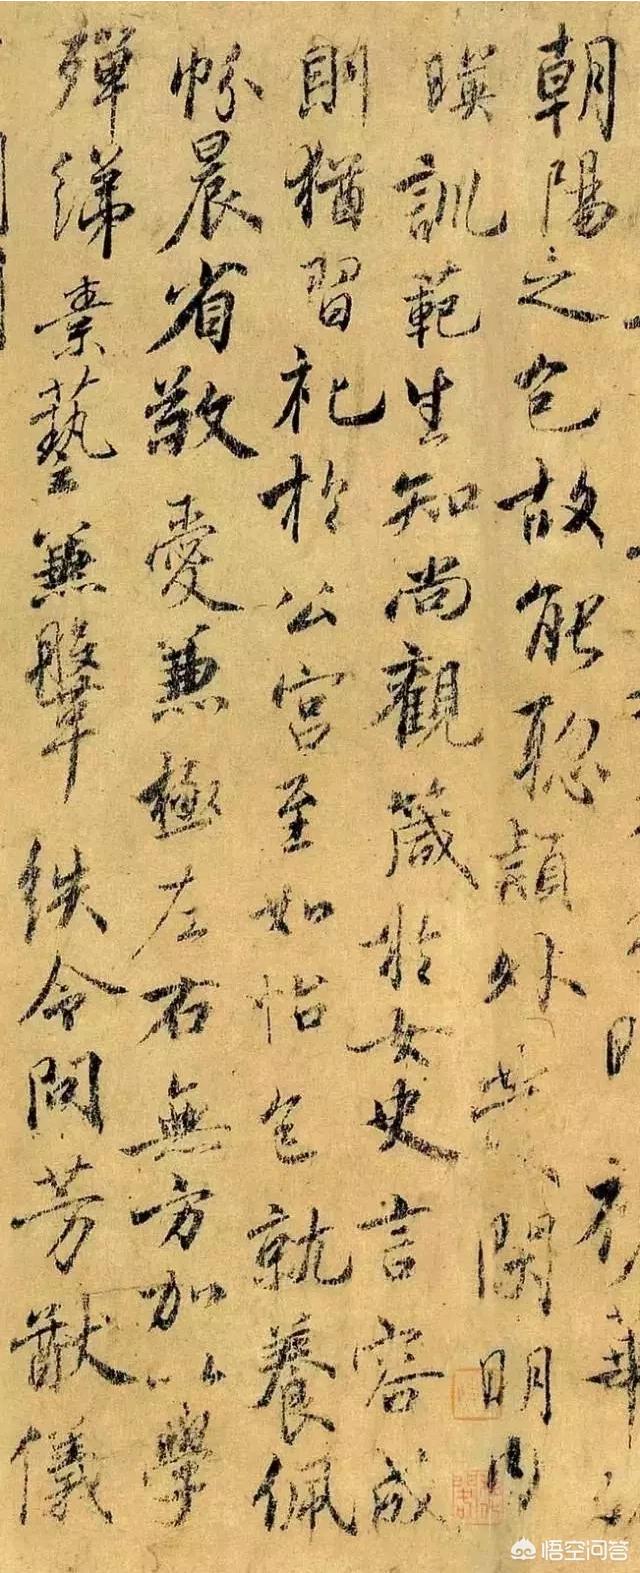 華
朝陽之色故能聡穎外發閑明内
暎訓範生知尚觀箴於女史言容成
則猶習礼於公宮至如怡色就養佩
帉晨省敬愛兼極左右無方加以學
殫綈素藝兼鞶紩令問芳猷儀
悟空问答